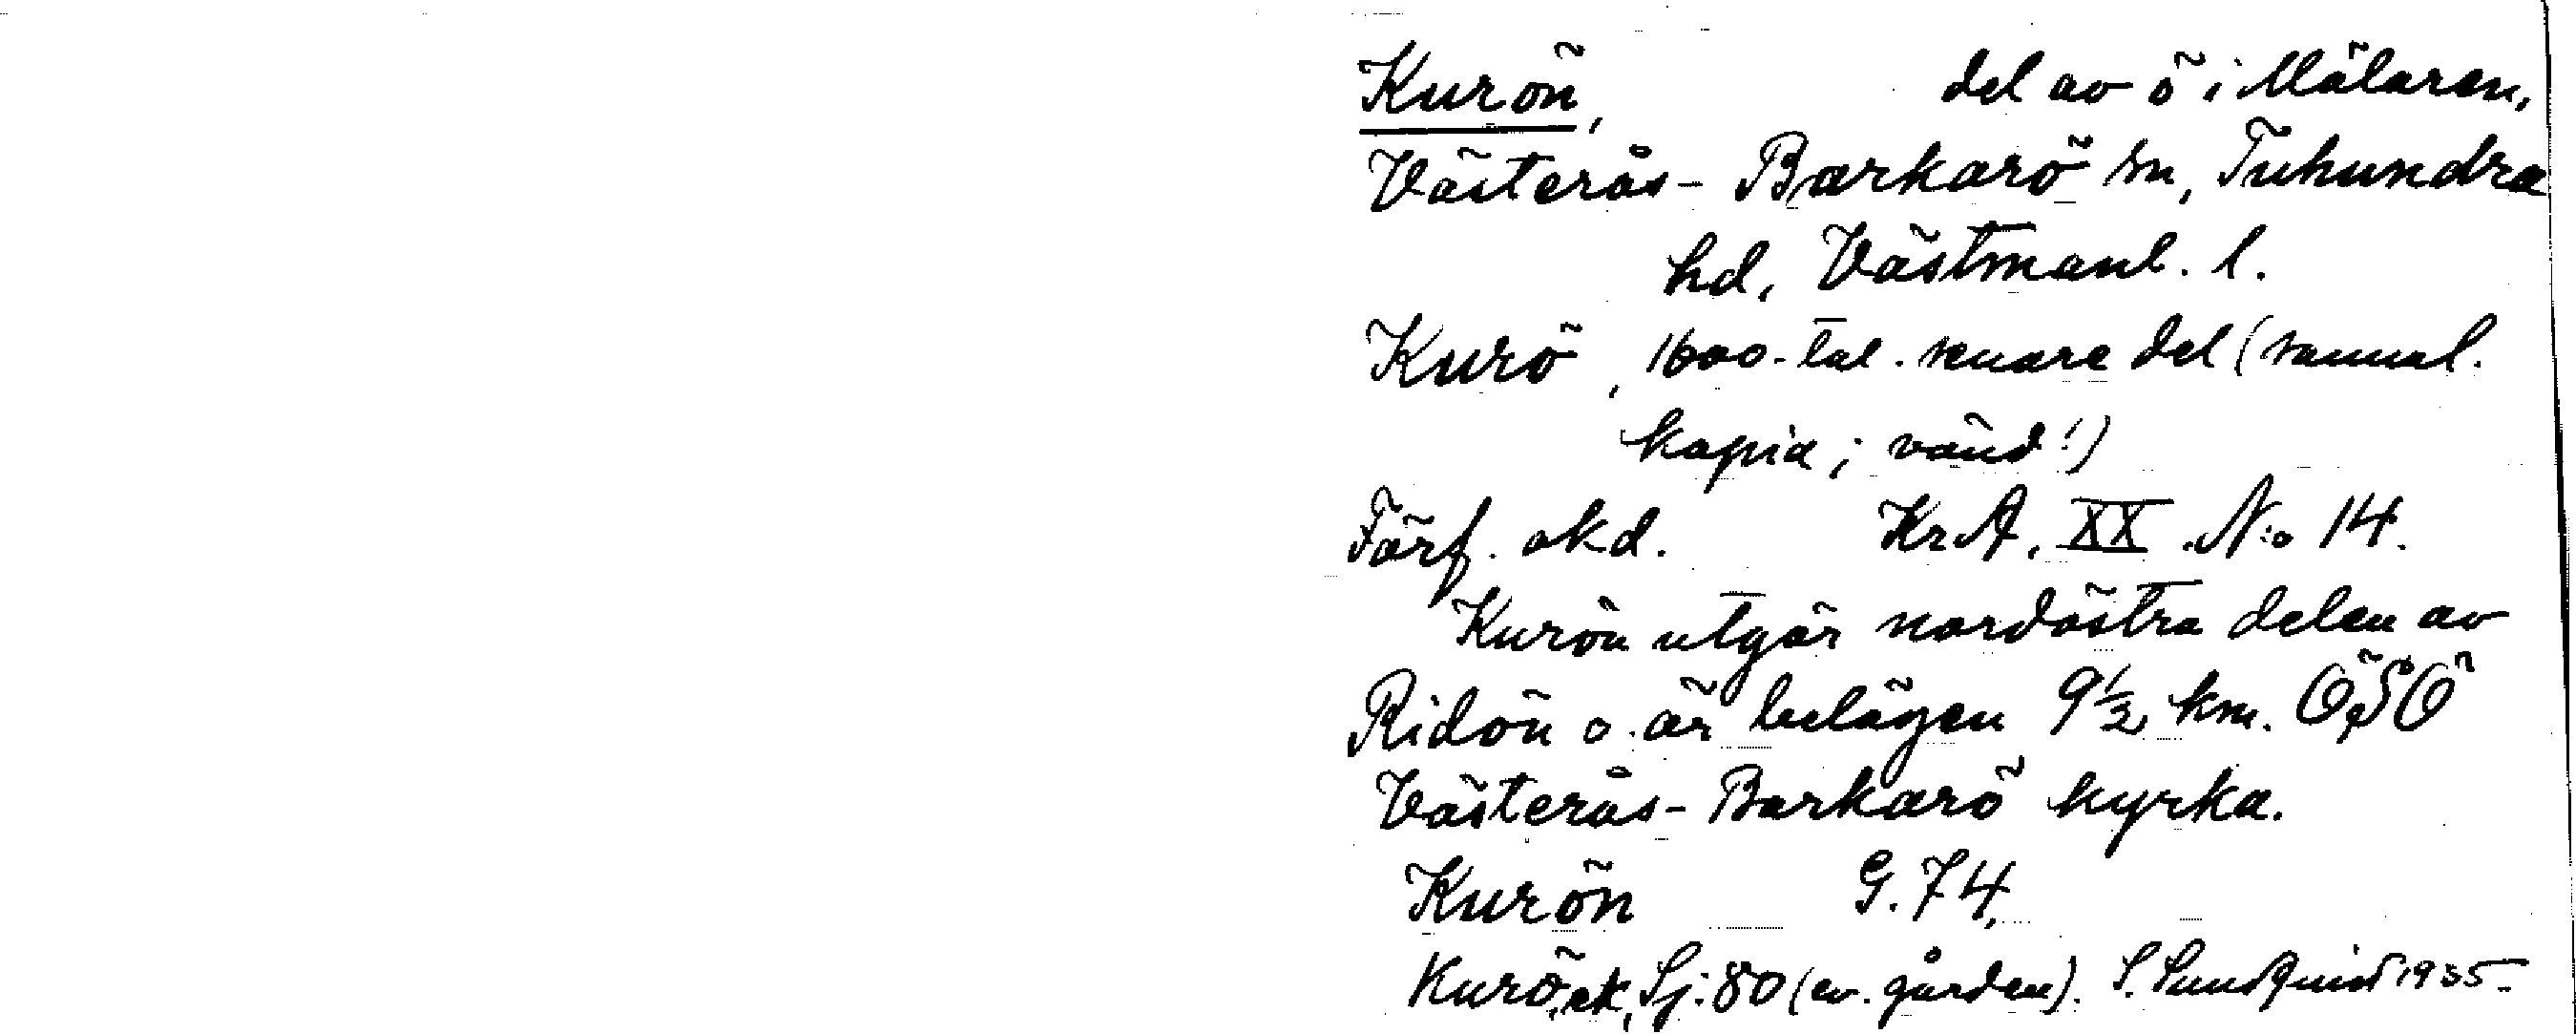 Kurön, del av ö i Mälaren,
Västerås-Barkarö sn, Tuhundra
hd, Västmanl. l.
Kurö, 1600-tal. senare del (samml.
kopia; vänd!)
Förf. okd. KrA. XX. N:o 14.
Kurön utgör nordöstra delen av
Ridön o. är belägen 9½ km. ÖSÖ
Västerås-Barkarö kyrka.
Kurön G. 74.
Kurö, ek, Sj: 80 (av. gården). S. Sundquist 1935.